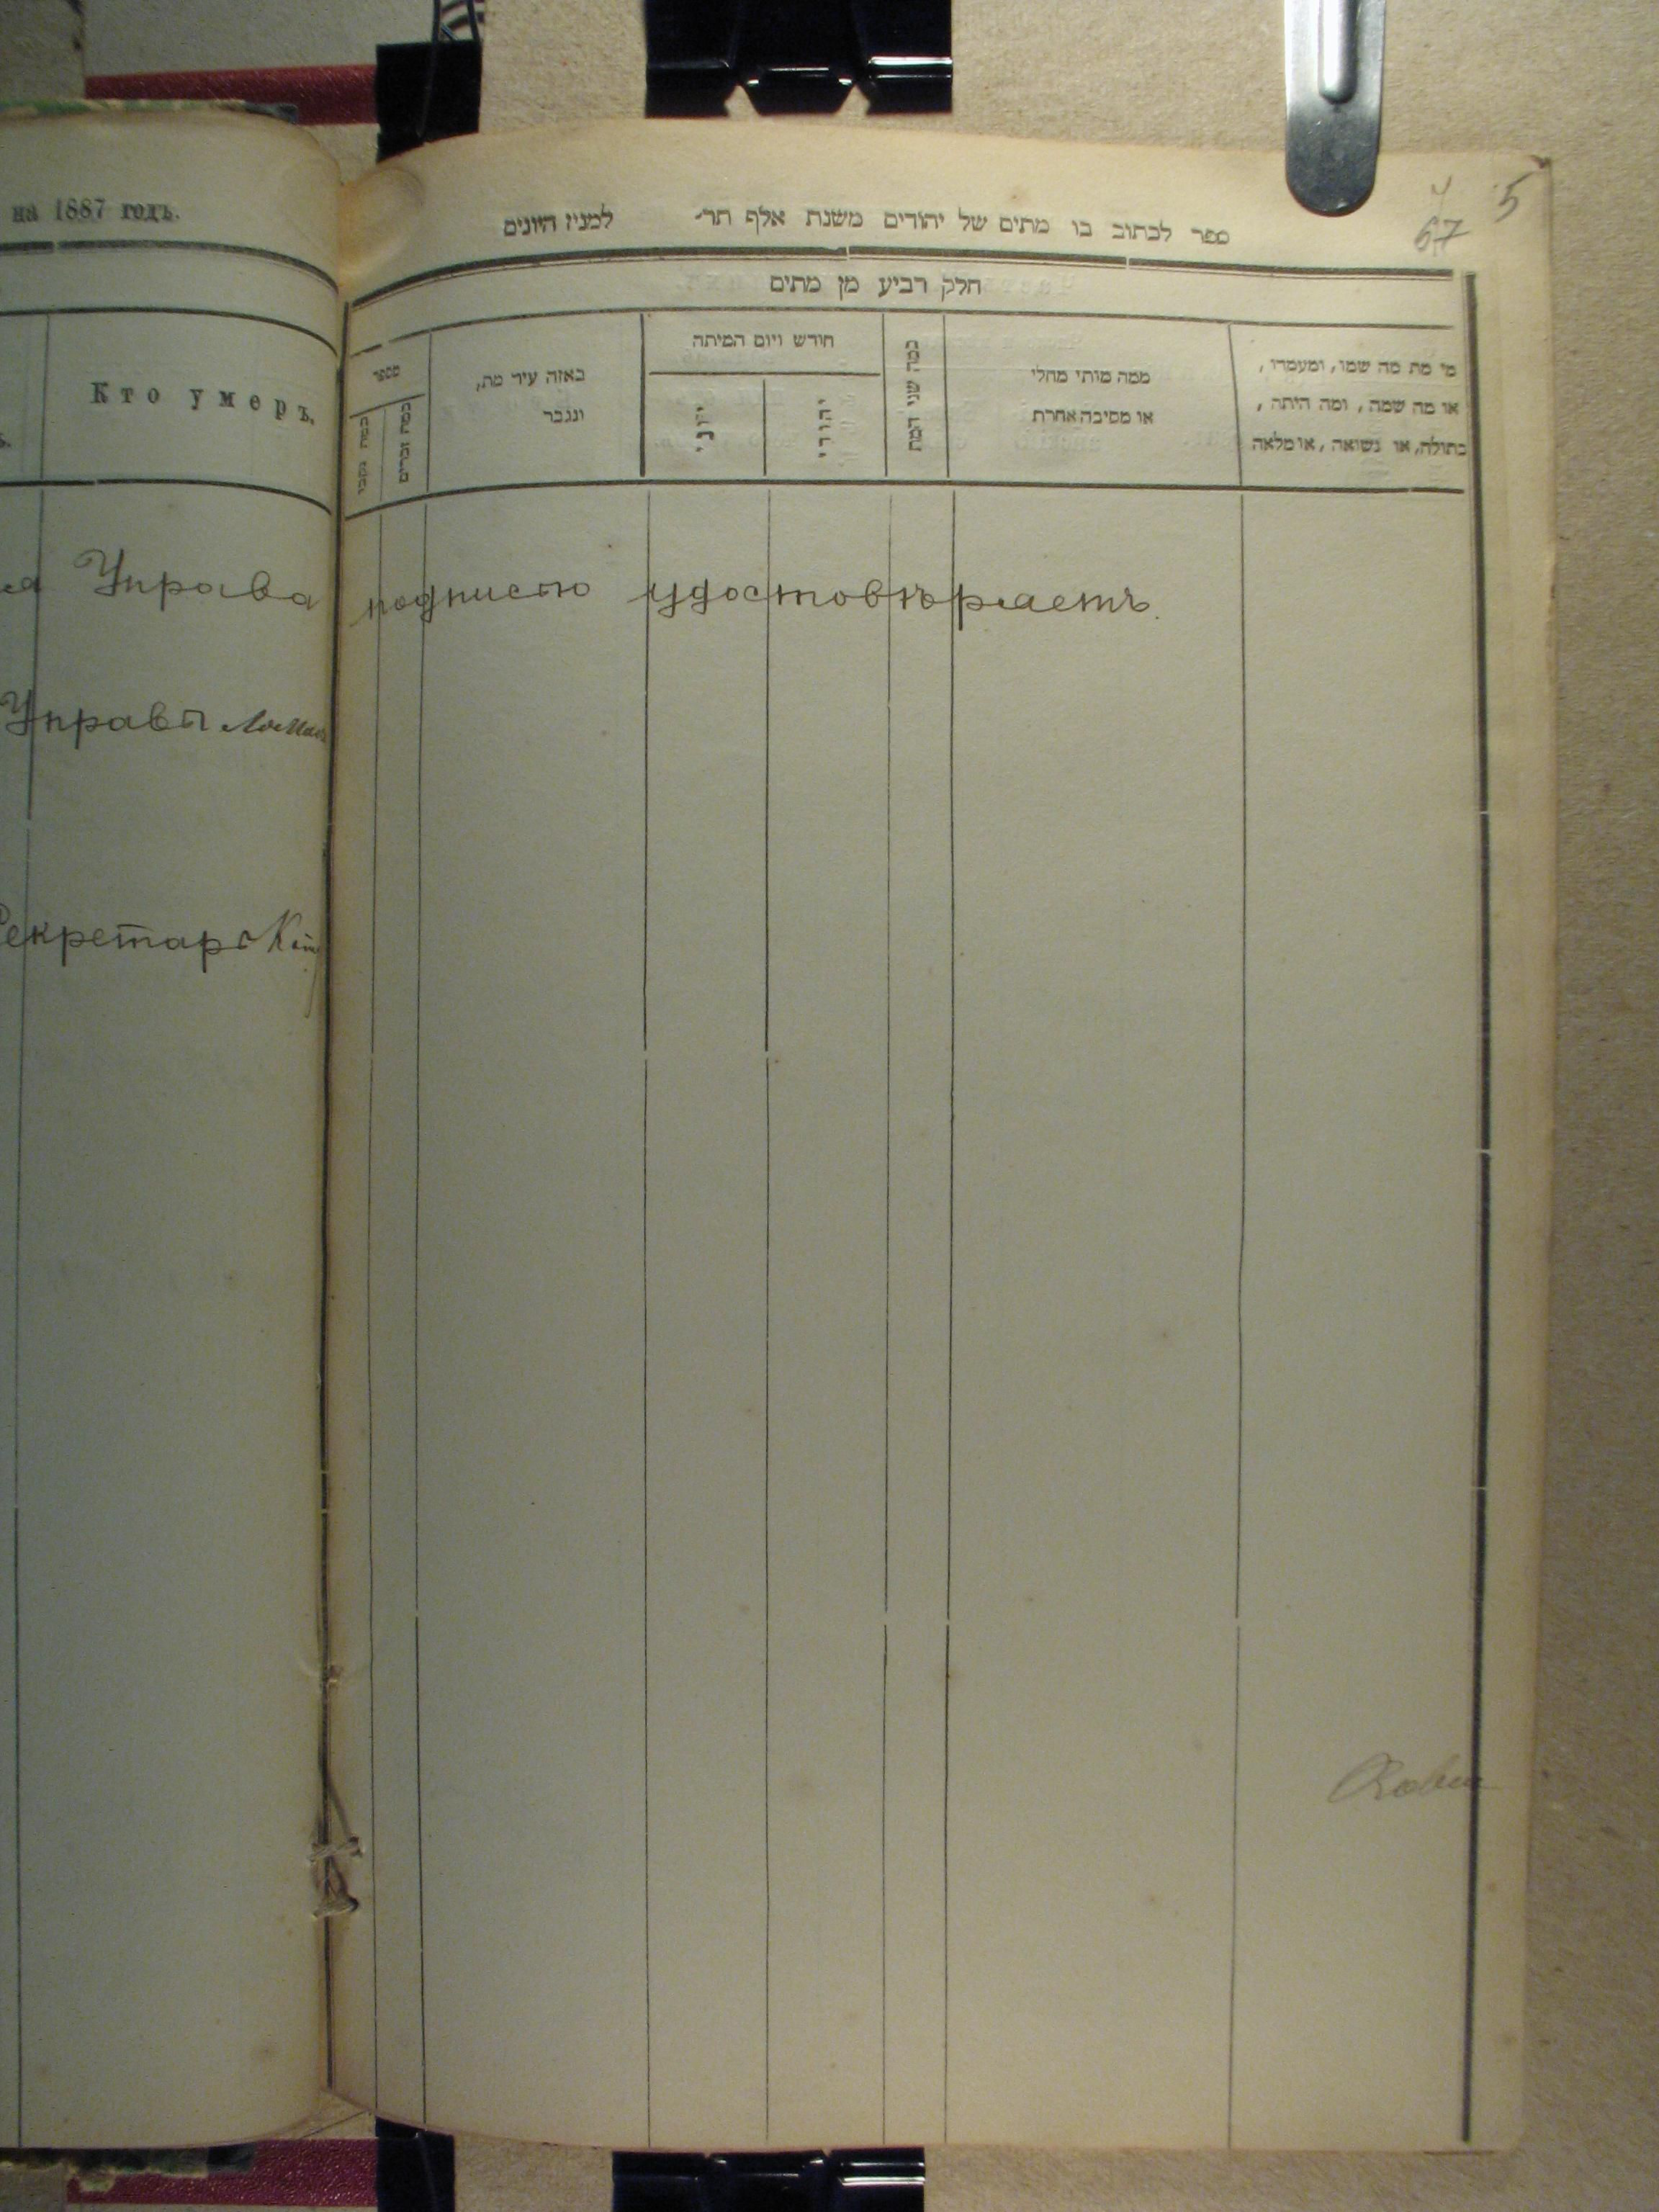 на 1887 годъ.
Кто умеръ.
Управа подписью удостовѣряетъ.
Управы
Секретарь
5
67
ספר לכתוב בו מתים של יהודים משנת אלף תר״ למנין היונים
חלק רביע מן מתים
מי מת מה שמו, ומעמדו,
או מה שמה, ומה היתה,
בתולה, או נשואה, או מלאה
ממה מותי מחלי
או מסיבה אחרת
כמה שני המת
חודש ויום המיתה
יהודי
יוני
באזה עיר מת,
ונגבר
מספר
כמה זכרים